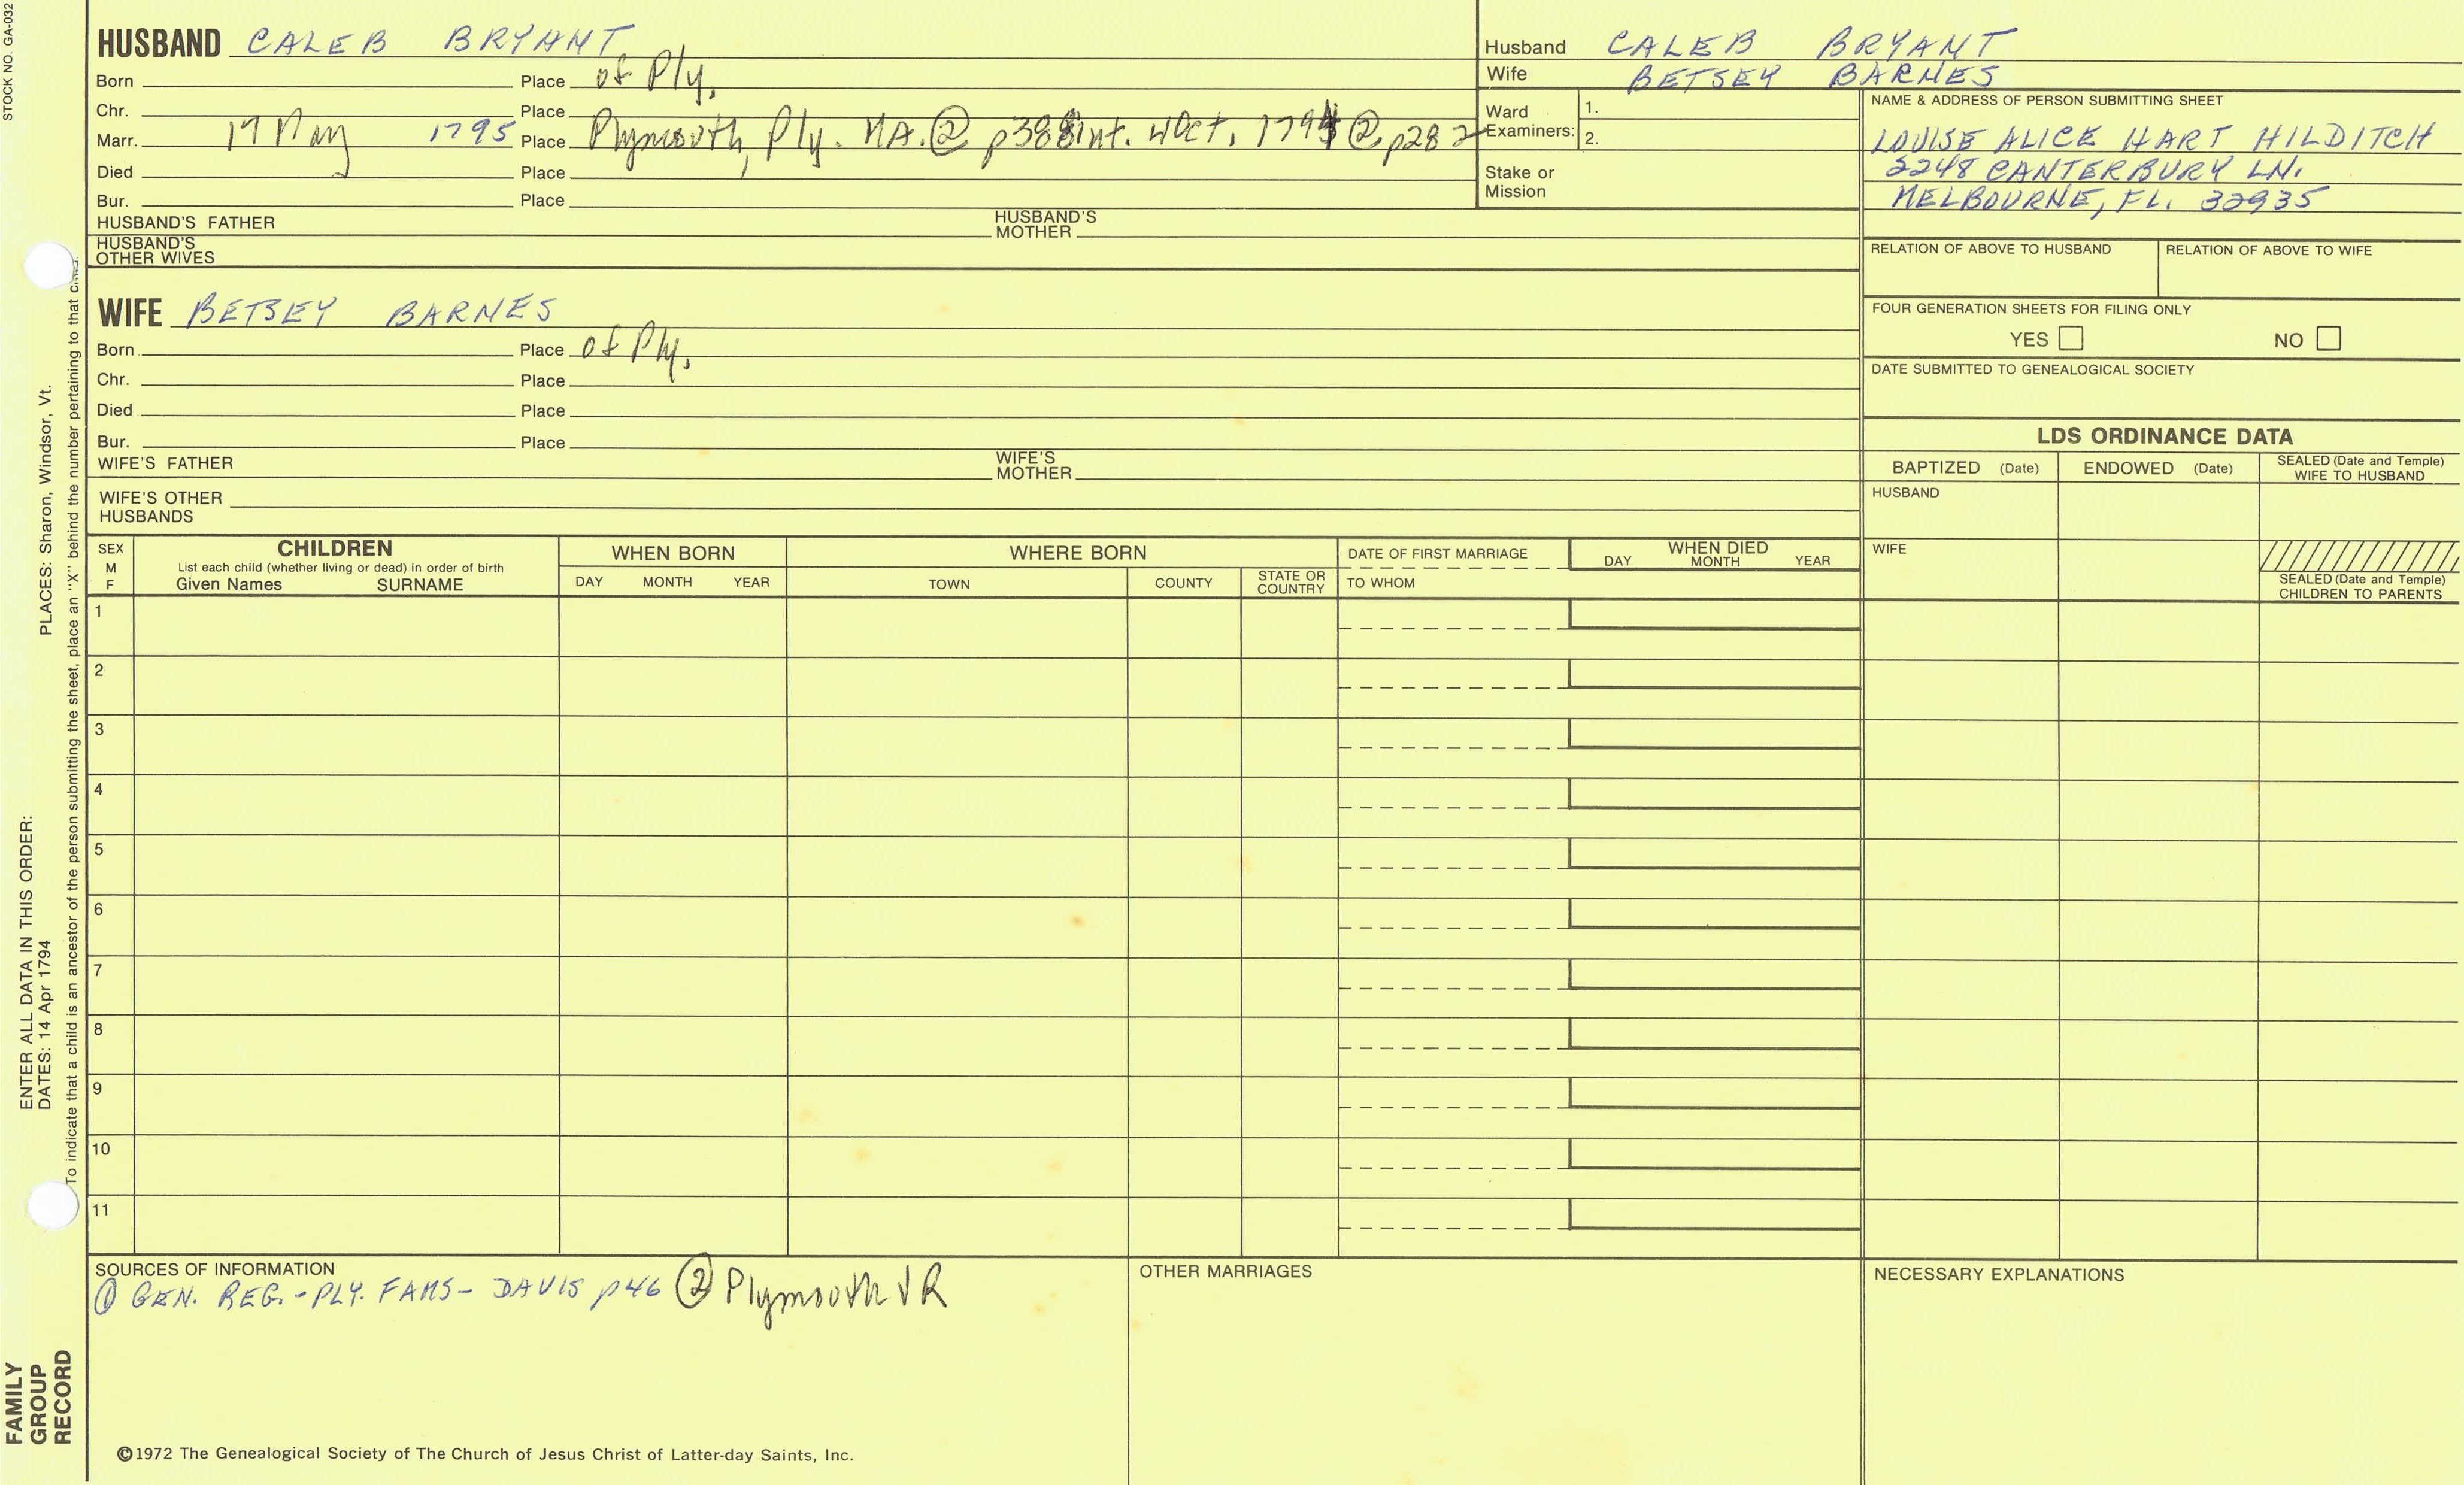 STOCK NO. GA-032
HUSBAND CALEB BRYANT
Born Place of Ply.
Chr. Place
Marr. 17 May 1795 Place Plymouth, Ply. MA. ② p388 int. 4 Oct. 1794 ② p282
Died Place
Bur. Place
HUSBAND'S FATHER HUSBAND'S MOTHER
HUSBAND'S OTHER WIVES
Husband CALEB BRYANT
Wife BETSEY BARNES
Ward Examiners: 1.
2.
Stake or Mission
NAME & ADDRESS OF PERSON SUBMITTING SHEET
LOUISE ALICE HART HILDITCH
2248 CANTERBURY LN.
MELBOURNE, FL. 32935
RELATION OF ABOVE TO HUSBAND RELATION OF ABOVE TO WIFE
FOUR GENERATION SHEETS FOR FILING ONLY
YES NO
DATE SUBMITTED TO GENEALOGICAL SOCIETY
WIFE BETSEY BARNES
Born Place of Ply.
Chr. Place
Died Place
Bur. Place
WIFE'S FATHER WIFE'S MOTHER
WIFE'S OTHER HUSBANDS
LDS ORDINANCE DATA
BAPTIZED (Date) ENDOWED (Date) SEALED (Date and Temple) WIFE TO HUSBAND
HUSBAND
WIFE
SEALED (Date and Temple) CHILDREN TO PARENTS
SEX M F
CHILDREN
List each child (whether living or dead) in order of birth
Given Names SURNAME
WHEN BORN
DAY MONTH YEAR
WHERE BORN
TOWN COUNTY STATE OR COUNTRY
DATE OF FIRST MARRIAGE
TO WHOM
WHEN DIED
DAY MONTH YEAR
1
2
3
4
5
6
7
8
9
10
11
SOURCES OF INFORMATION
① GEN. REG. - PLY. FAMS - DAVIS p46 ② Plymouth VR
OTHER MARRIAGES
NECESSARY EXPLANATIONS
©1972 The Genealogical Society of The Church of Jesus Christ of Latter-day Saints, Inc.
FAMILY GROUP RECORD
ENTER ALL DATA IN THIS ORDER:
DATES: 14 Apr 1794 PLACES: Sharon, Windsor, Vt.
To indicate that a child is an ancestor of the person submitting the sheet, place an "X" behind the number pertaining to that child.